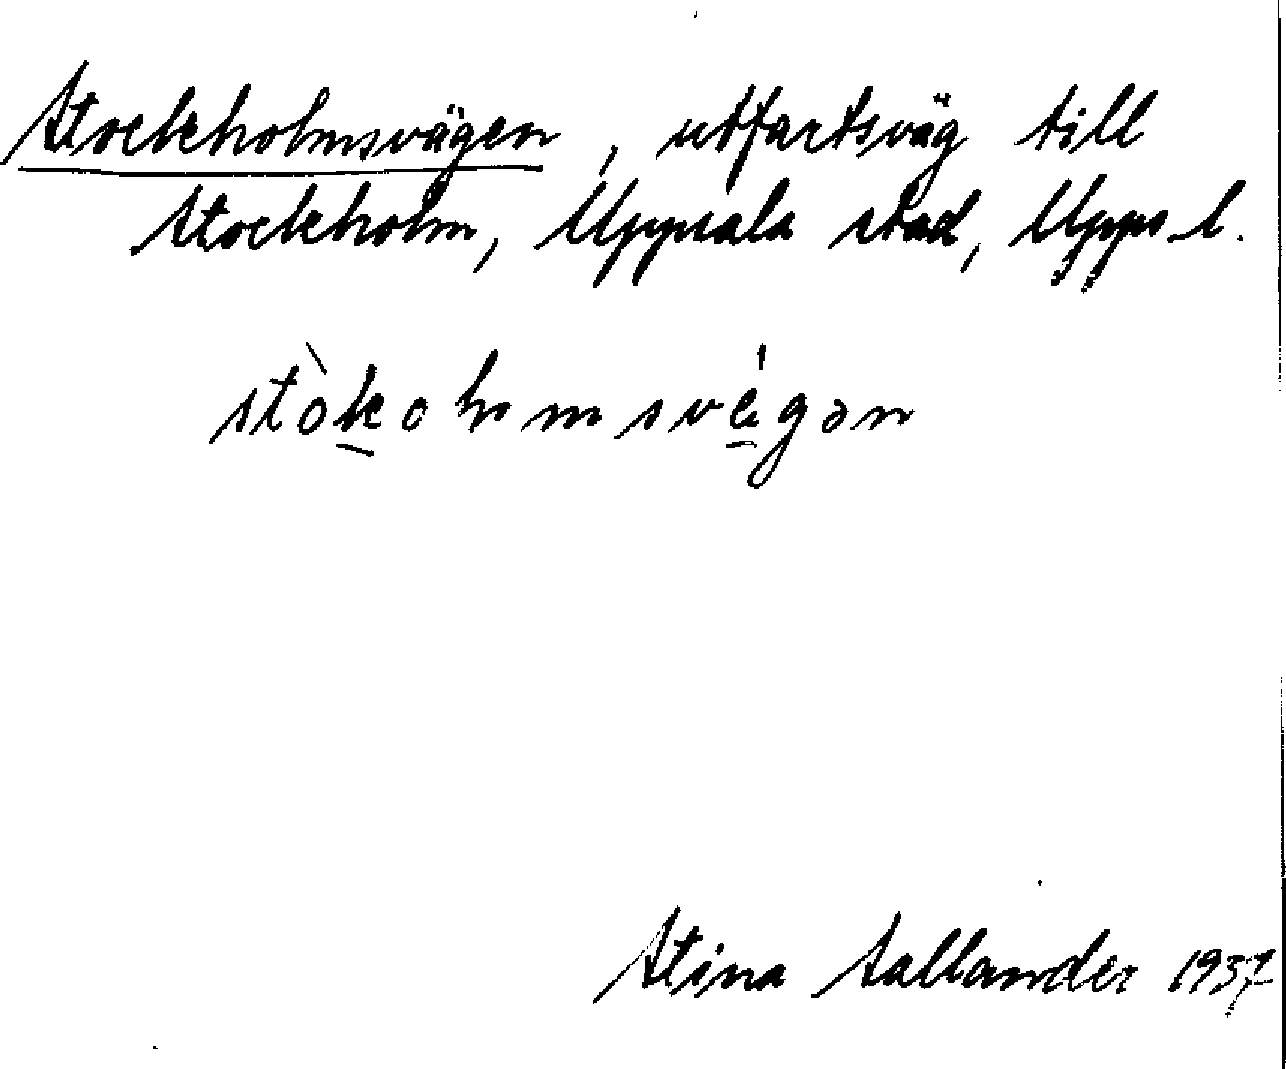 Stockholmsvägen, utfartsväg till
Stockholm, Uppsala stad, Upps. l.
stòkohmsvégən
Stina Sallander 1937